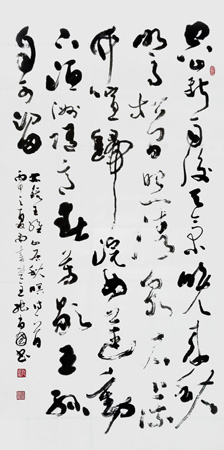 空山新雨後天氣晚來秋
明月松間照清泉石上流
竹喧歸浣女蓮動
下漁舟隨意春芳歇王孫
自可留
王維山居秋暝詩一首
丙申之夏